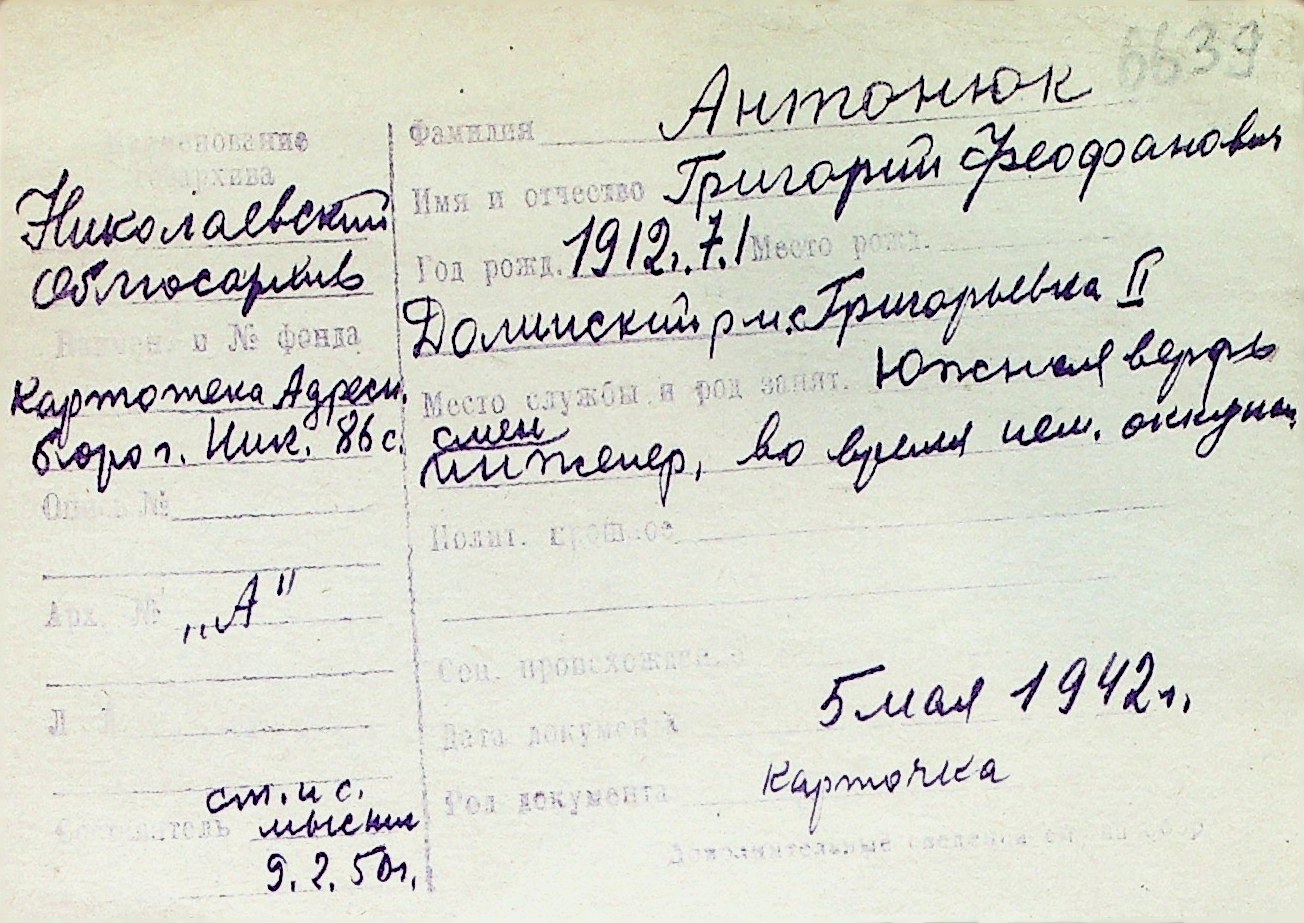 6639
Наименование
госархива
Николаевский
Облгосархив
№ фонда
Картотека Адресн.
бюро г. Ник. 86 с.
Опись №
Арх. № „А"
Л. Л.
Составитель ст. и с.
9.2.50г.
Фамилия Антонюк
Имя и отчество Григорий Феофанович
Год рожд. 1912.7.1 Место рожд.
Долинский р-н с. Григорьевка II
Место службы и род занят. Южная верфь
смен
инженер, во время нем. оккупац.
Полит. прошлое
Соц. происхождение
Дата документа 5 мая 1942 г.
Род документа карточка
Дополнительные сведения см. на обор